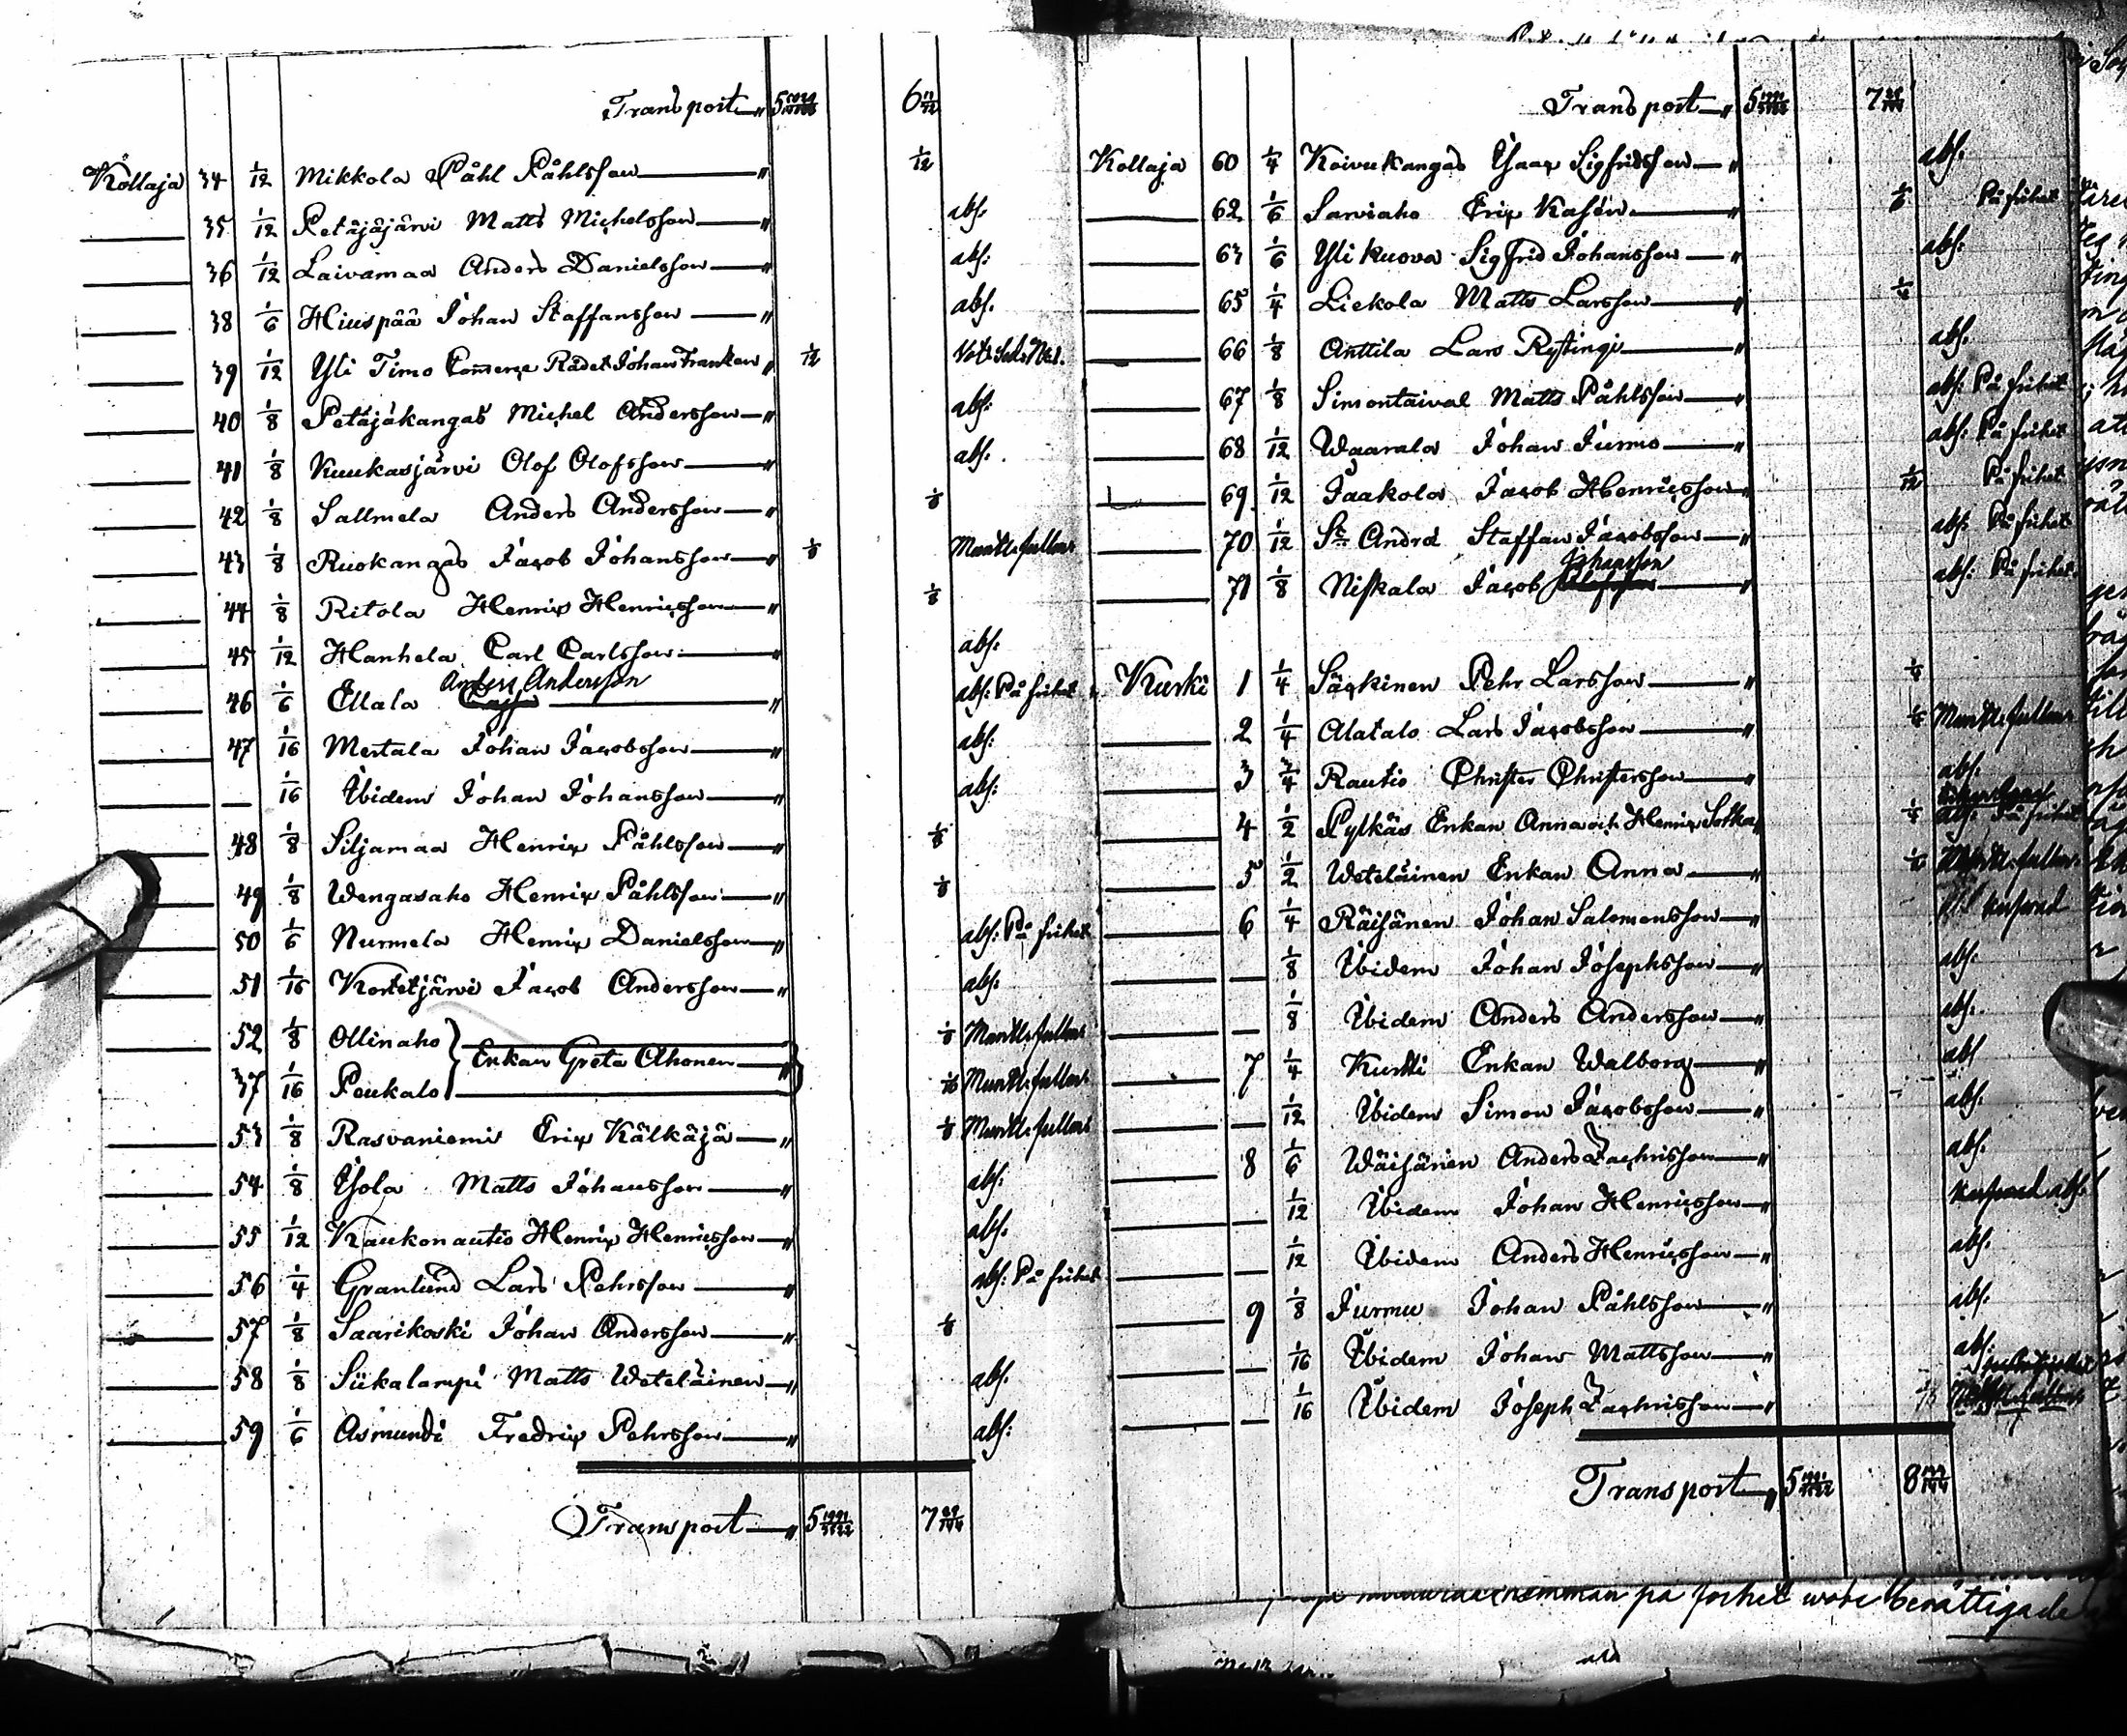 Transport 5 6 11/12
Kollaja 34 1/12 Mikkola Påhl Påhlsson " 1/12
35 1/12 Petäjäjärvi Matts Michelsson " abs:
36 1/12 Laivamaa Anders Danielsson " abs:
38 1/6 Hiuspää Johan Staffansson " abs.
39 1/12 Yli Timo Commerce Rådet Johan Franken " 1/12
40 1/8 Petäjäkangas Michel Andersson " abs:
41 1/8 Kuukasjärvi Olof Olofsson " abs.
42 1/8 Sallmela Anders Andersson " 1/8
43 1/8 Ruokangas Jacob Johansson " 1/8
44 1/8 Ritola Henrix Henricsson " 1/8
45 1/12 Hanhela Carl Carlsson " abs:
Anders Andersson
46 1/6 Ellala " abs: På frihet
47 1/16 Mertala Johan Jacobsson " abs:
— 1/16 Ibidem Johan Johansson " abs:
48 1/8 Siljamaa Henrix Påhlsson " 1/8
49 1/8 Wengasaho Henrix Påhlsson " 1/8
50 1/6 Nurmela Henrix Danielsson " abs: På frihet
51 1/16 Kortetjärvi Jacob Andersson " abs.
52 1/8 Ollinaho 1/8
Enkan Greta Ahonen "
37 1/16 Peukalo 1/16
53 1/8 Rasvaniemi Erix Kälkäjä " 1/8
54 1/8 Isola Matts Johansson " abs.
55 1/12 Kaukonautio Henrix Henricsson " abs.
56 1/4 Granlund Lars Pehrsson " abs: På frihet
57 1/8 Saarikoski Johan Andersson " 1/8
58 1/8 Siikalampi Matts Weteläinen " abs.
59 1/6 Asmundi Fredrix Pehrsson " abs:
Transport " 5 7 29/144
Transport " 5 7 29/144
Kollaja 60 1/4 Koivukangas Isaax Sigfridsson " abs.
62 1/6 Sarviaho Erix Kasén " 1/6 På frihet
63 1/6 Yli Kuova Sigfrid Johansson " abs:
65 1/4 Liekola Matts Larsson " 1/4
66 1/8 Anttila Lars Rytingi " abs.
67 1/8 Simontaival Matts Påhlsson " abs: På frihet
68 1/12 Waarala Johan Jurmo " abs: På frihet
69 1/12 Jaakola Jacob Henricsson " 1/12 På frihet
70 1/12 Andra Staffan Jacobsson " abs: På frihet
Johansson
71 1/8 Niskala Jacob " abs: På frihet
Kurki 1 1/4 Särkinen Pehr Larsson " 1/4
2 1/4 Alatalo Lars Jacobsson " 1/4
3 3/4 Rautio Christer Christersson " abs.
4 1/2 Pylkäs Enkan Anna och Henrix Sotka " 1/4 abs: På frihet
5 1/2 Weteläinen Enkan Anna "
6 1/4 Räisänen Johan Salomonsson "
— 1/8 Ibidem Johan Josephsson " abs.
— 1/8 Ibidem Anders Andersson " abs.
7 1/4 Kurtti Enkan Walborg " abs
— 1/12 Ibidem Simon Jacobsson " abs.
8 1/6 Wäisänen Anders Zachrisson " abs.
— 1/12 Ibidem Johan Henricsson " abs.
— 1/12 Ibidem Anders Henricsson " abs.
9 1/8 Jurmu Johan Påhlsson " abs.
— 1/16 Ibidem Johan Mattsson " abs:
— 1/16 Ibidem Joseph Zachrisson "
Transport " 5 8
hemman på frihet wore berättigade